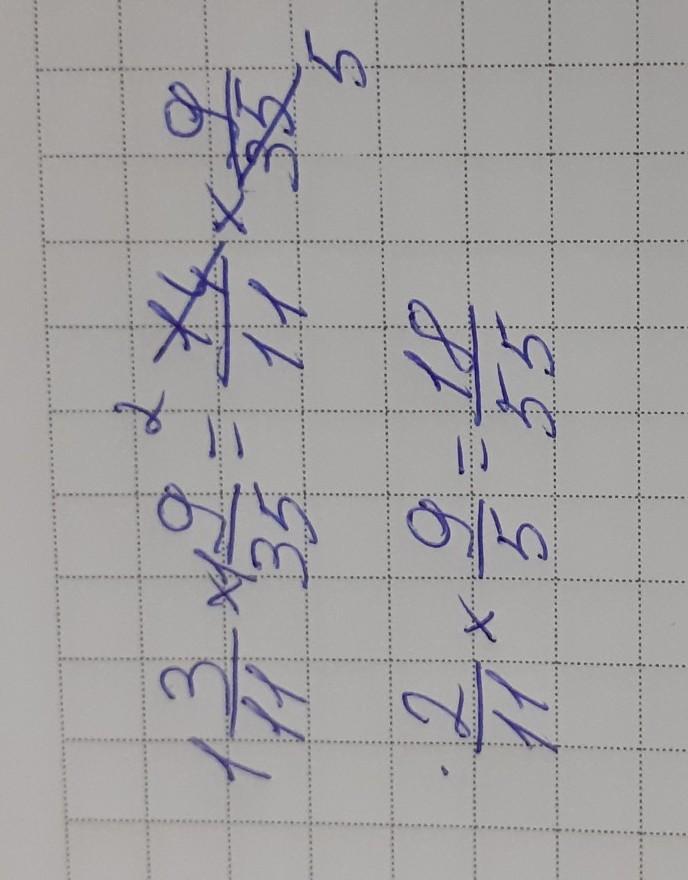 1 3/11 × 9/35 = 2 14/11 × 9/35 5
2/11 × 9/5 = 18/55